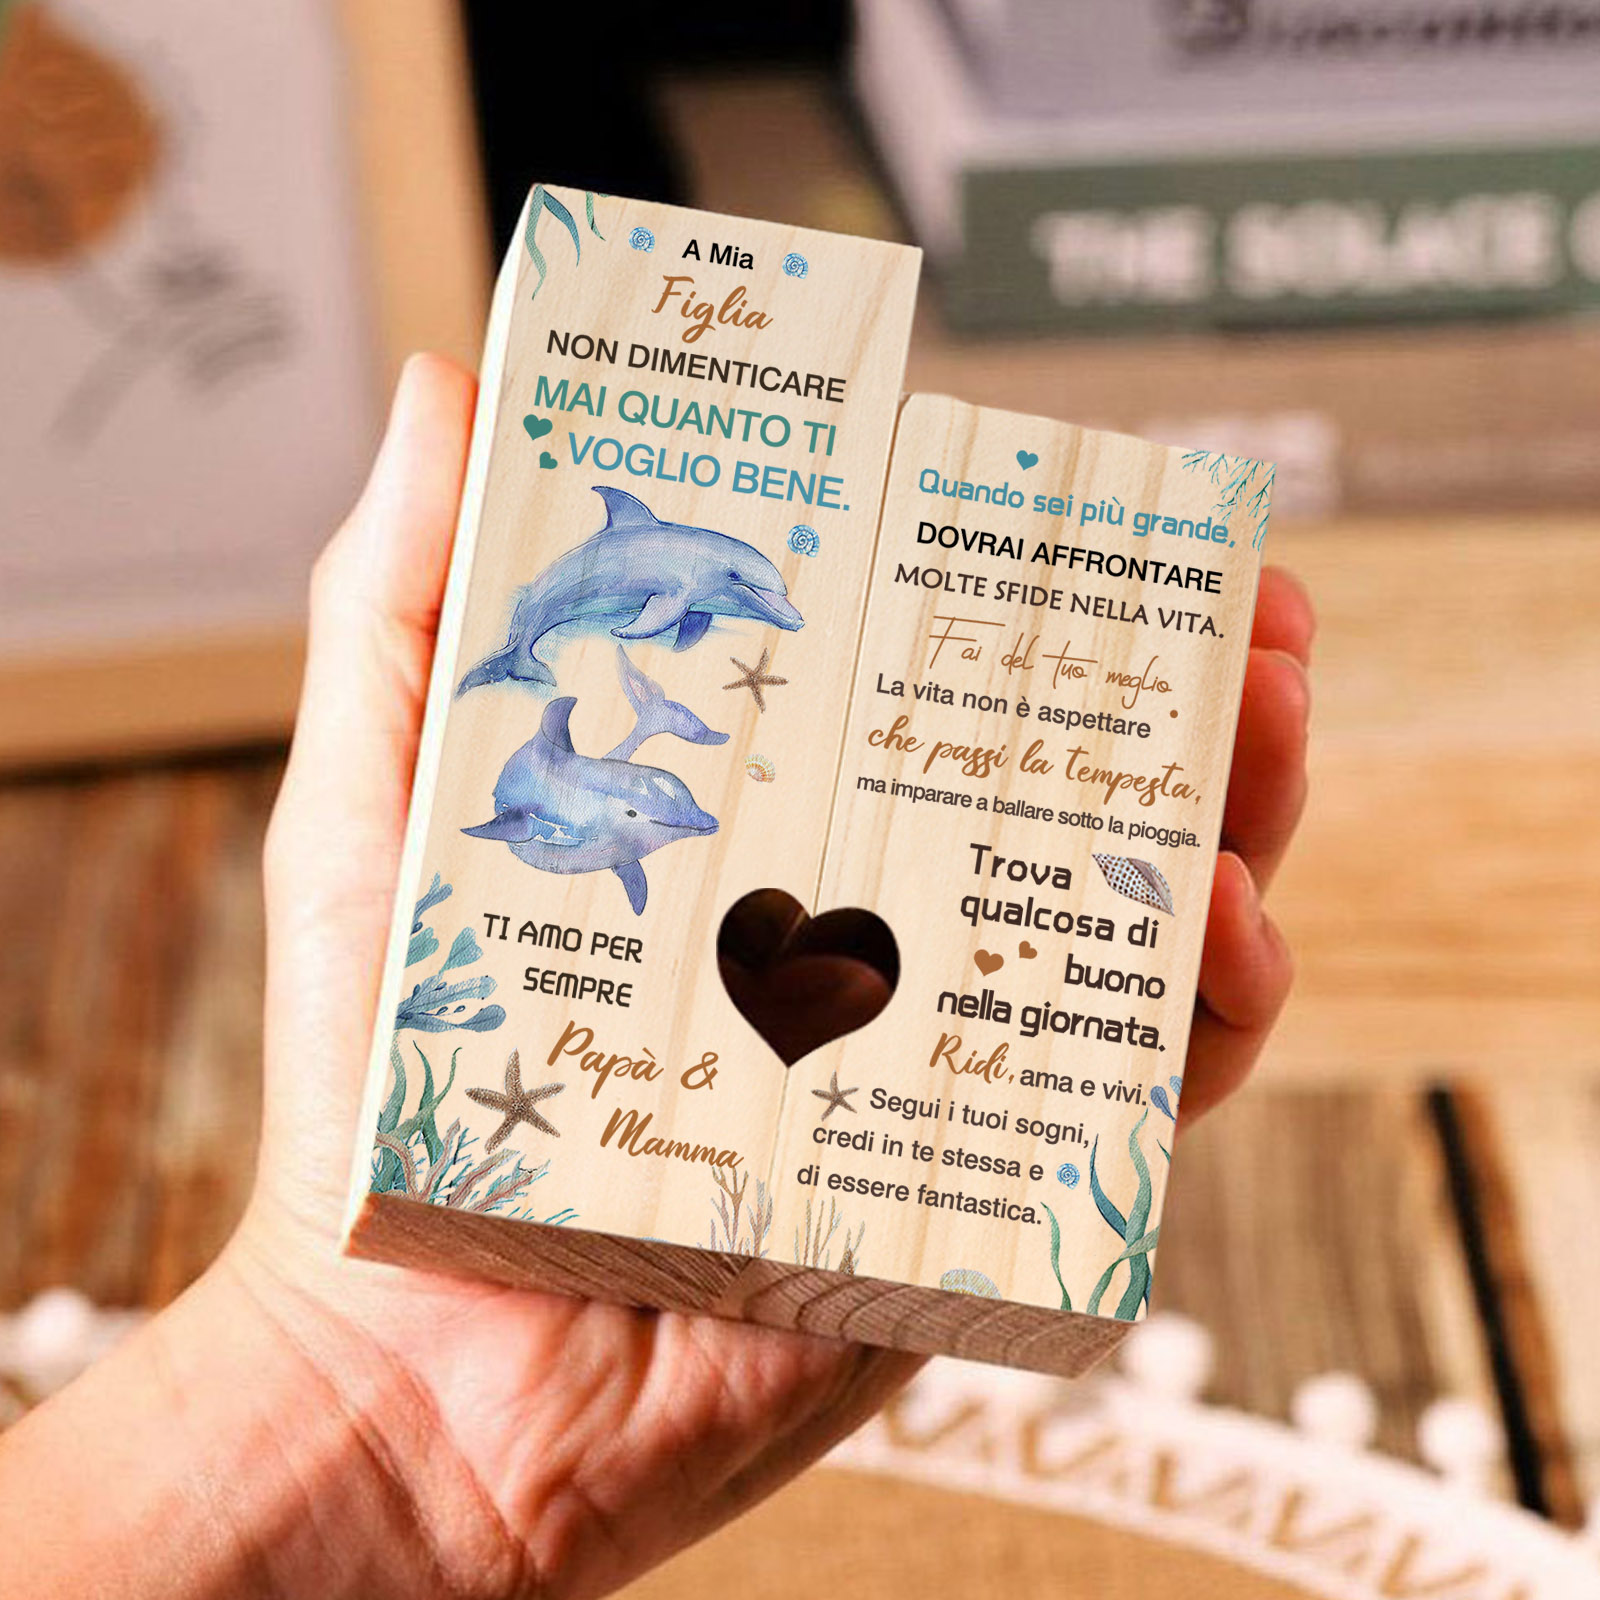 A Mia
Figlia
NON DIMENTICARE
MAI QUANTO TI
VOGLIO BENE.
TI AMO PER
SEMPRE
Papà &
Mamma
Quando sei più grande,
DOVRAI AFFRONTARE
MOLTE SFIDE NELLA VITA.
Fai del tuo meglio.
La vita non è aspettare
che passi la tempesta,
ma imparare a ballare sotto la pioggia.
Trova
qualcosa di
buono
nella giornata.
Ridi, ama e vivi.
Segui i tuoi sogni,
credi in te stessa e
di essere fantastica.
THE SOLACE